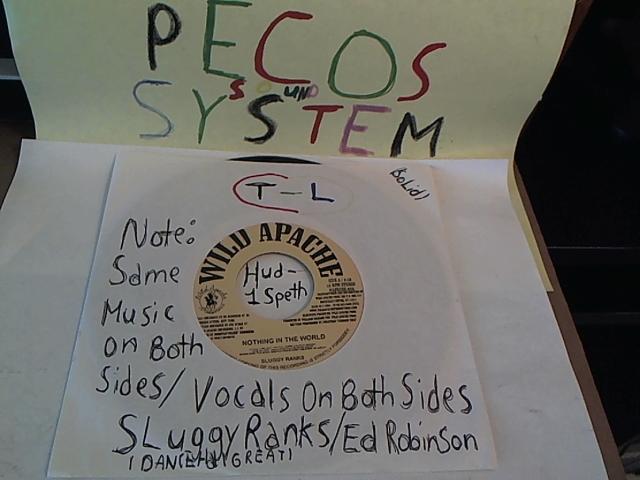 PECOS
SOUND
SYSTEM
(SoLid)
T-L
Note:
Same
Music
on Both
Sides/ Vocals On Both Sides
SLuggy Ranks/Ed Robinson
(DANCEHALL GREAT)
WILD APACHE
Hud-
1 Speth
NOTHING IN THE WORLD
SLUGGY RANKS